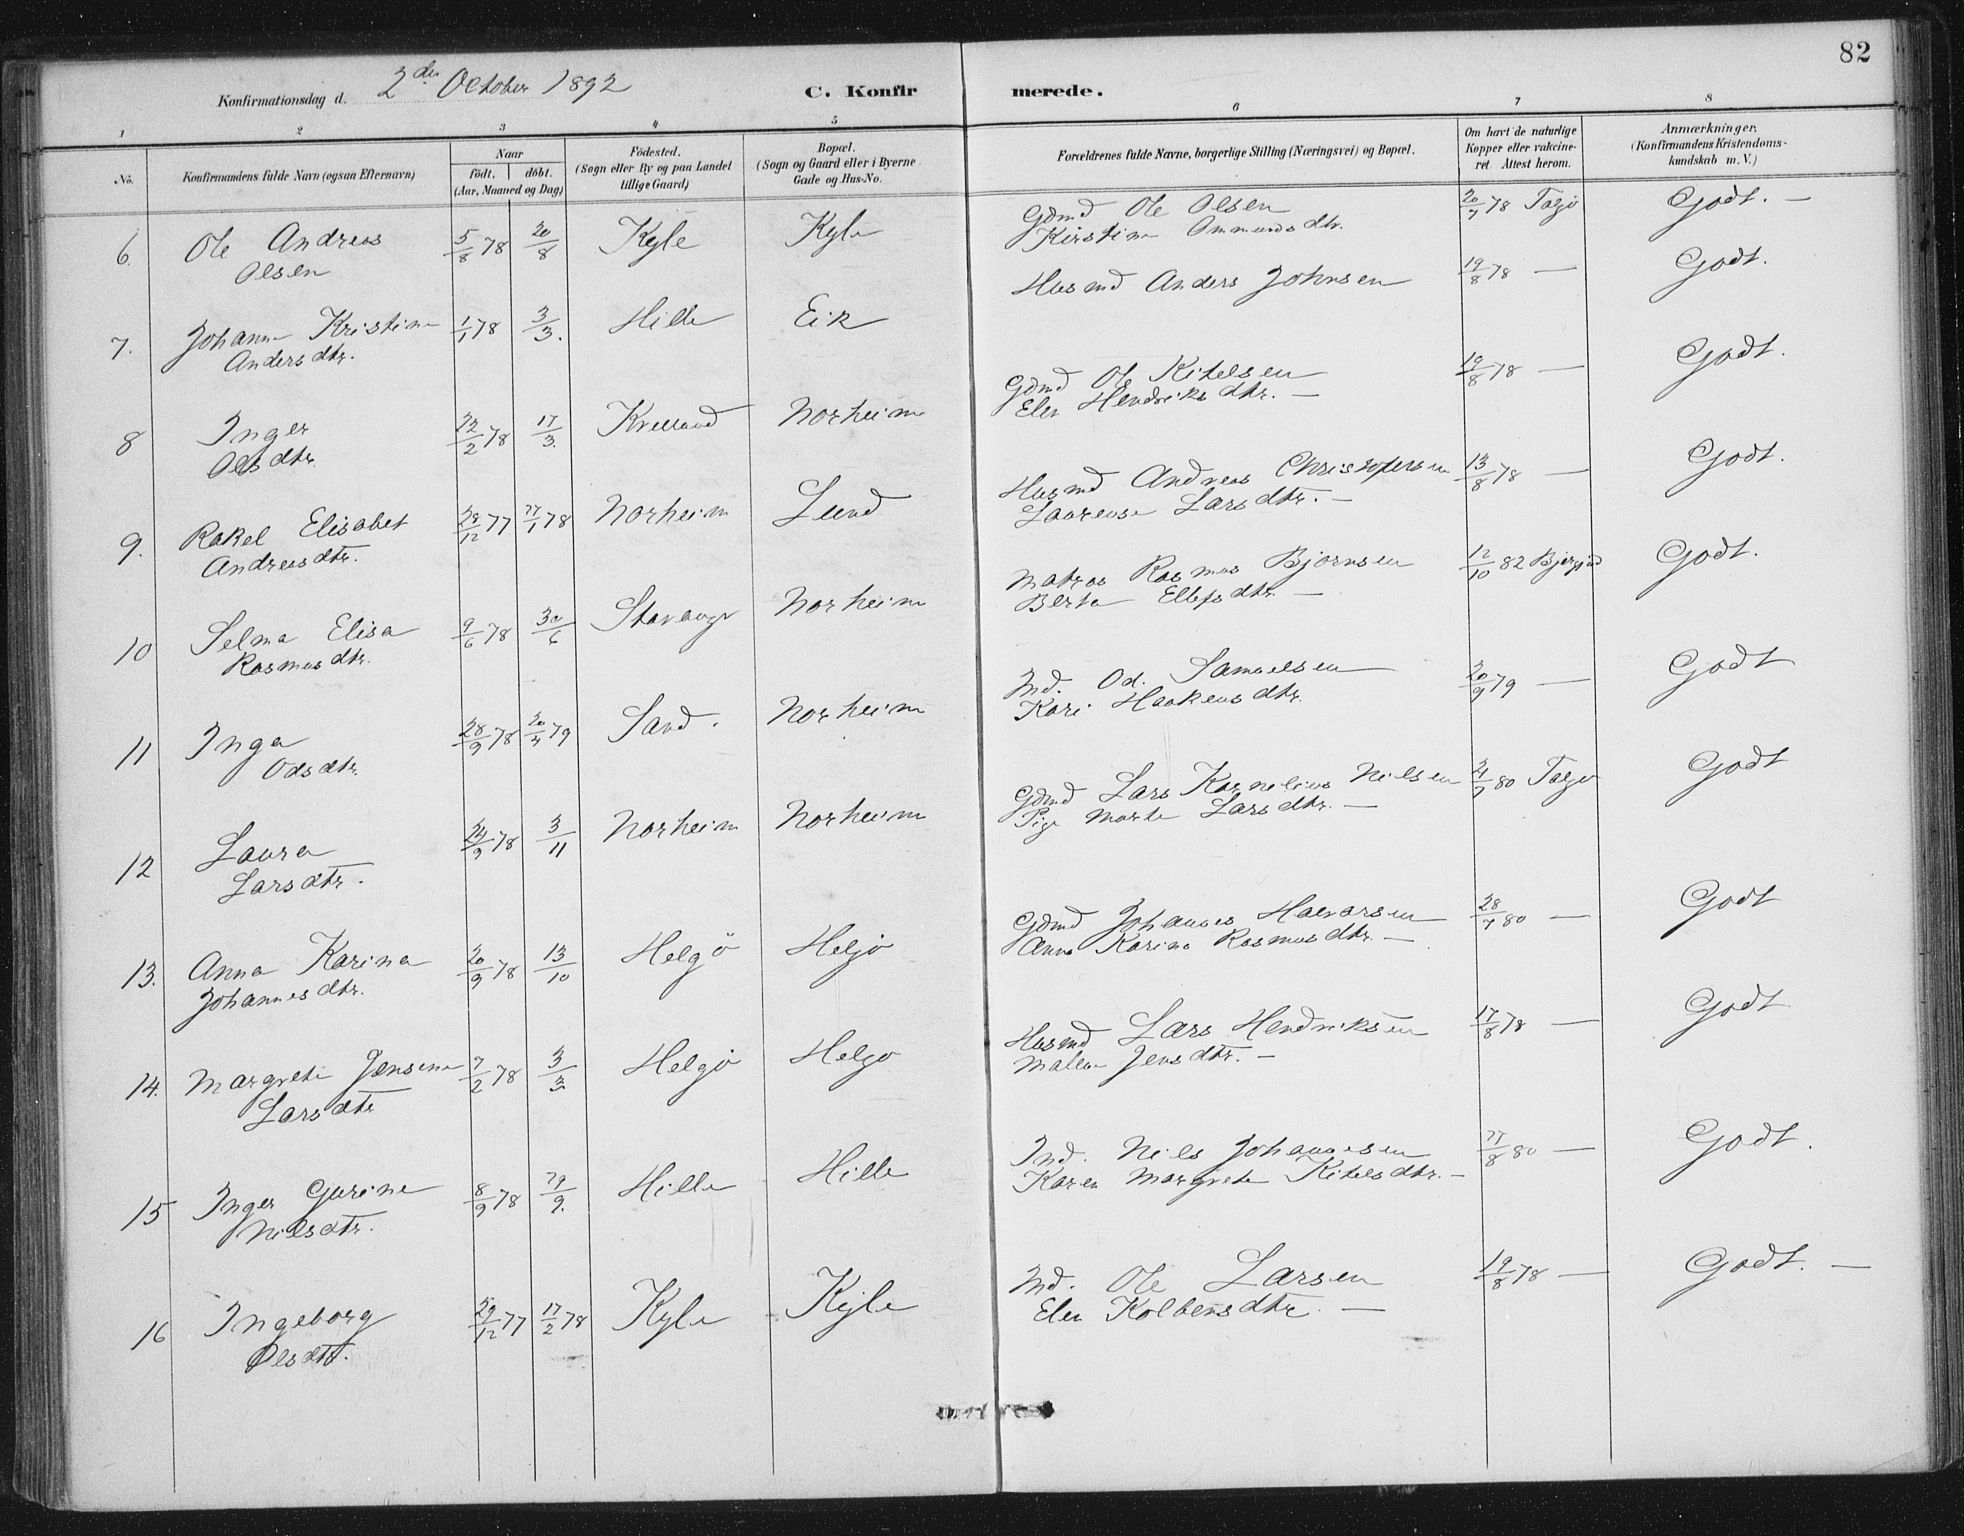 82
Konfirmationsdag d. 2den October 1892
C. Konfirmerede.
1 2 3 4 5 6 7 8
No. Konfirmandens fulde Navn (ogsaa Efternavn)
Naar
født. døbt.
(Aar, Maaned og Dag)
Födested.
(Sogn eller By og paa Landet
tillige Gaard)
Bopæl.
(Sogn og Gaard eller i Byerne
Gade og Hus-No.
Forældrenes fulde Navne, borgerlige Stilling (Næringsvei) og Bopæl.
Om havt de naturlige
Kopper eller vakcine-
ret. Attest herom.
Anmærkninger.
(Konfirmandens Kristendoms-
kundskab m. V.)
6. Ole Andreas 5/8 78 20/8 Kyle Kyle Gdmd Ole Olsen 20/7 78 Godt. —
Olsen Kirstine Ommundsdtr.
7. Johanne Kristine 1/1 78 3/3. Hille Eik Husmd Anders Johnsen 19/8 78 — Godt.
Andersdtr.
8 Inger 22/2 78 17/3. Norheim Gdmd Ole Kitelsen 19/8 78 — Godt.
Olsdtr. Elen Hendriksdtr. —
9. Rakel Elisabet 28/12 77 78 Norheim Lund Husmd Andreas Christofersen 13/8 78 — Godt.
Andreasdtr. Laurense Larsdtr. —
10 Selma Elisa 9/6 78 30/6 Norheim Matros Rasmus Bjørnsen 12/10 82 Godt.
Rasmusdtr. Berta —
11 Inga 28/9 78 79 Sand. Norheim Ind. Od. Samuelsen 20/9 79 — Godt
Odsdtr. Kari Haakensdtr.
12 Laura 24/9 78 3/11 Norheim Norheim Gdmd Lars Kornelius Nielsen 80 Godt
Larsdtr. Pige Marte Larsdtr. —
13. Anna Karina 20/9 78 13/10 Helgö Helgö Gdmd Johannes Halvorsen 28/7 80 — Godt
Johannesdtr. Anna Karina Rasmusdtr. —
14. Margrete Jensine 7/2 78 3/3 Helgö Helgö Husmd Lars Hendriksen 17/8 78 — Godt
Larsdtr Jensdtr. —
15 Inger Gurine 8/9 78 Hille Hille Ind. Niels Johannesen 80 — Godt.
Nilsdtr. Karen Margrete Kitelsdtr. —
16 Ingeborg 29/12 77 17/2 78 Kyle Kyle Ind. Ole Larsen 19/8 78 — Godt. —
Olsdtr. Elen Kolbensdtr. —